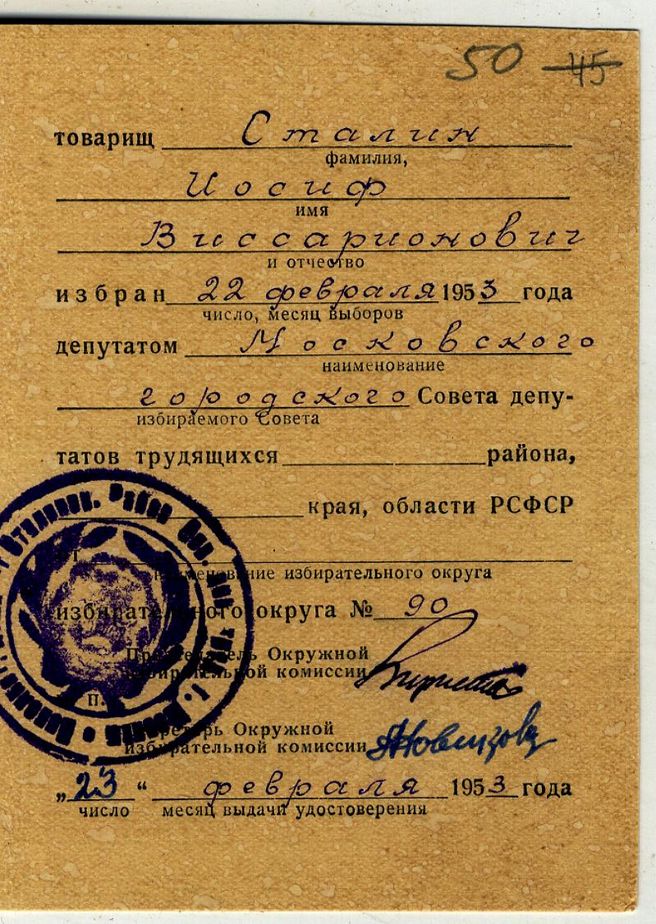 50 45
товарищ Сталин
фамилия,
Иосиф
имя
Виссарионович
и отчество
избран 22 февраля 1953 года
число, месяц выборов
депутатом Московского
наименование
городского Совета депу-
избираемого Совета
татов трудящихся района,
края, области РСФСР
от
наименование избирательного округа
избирательного округа № 90
Председатель Окружной
избирательной комиссии
Секретарь Окружной
избирательной комиссии
„23“ февраля 1953 года
число месяц выдачи удостоверения